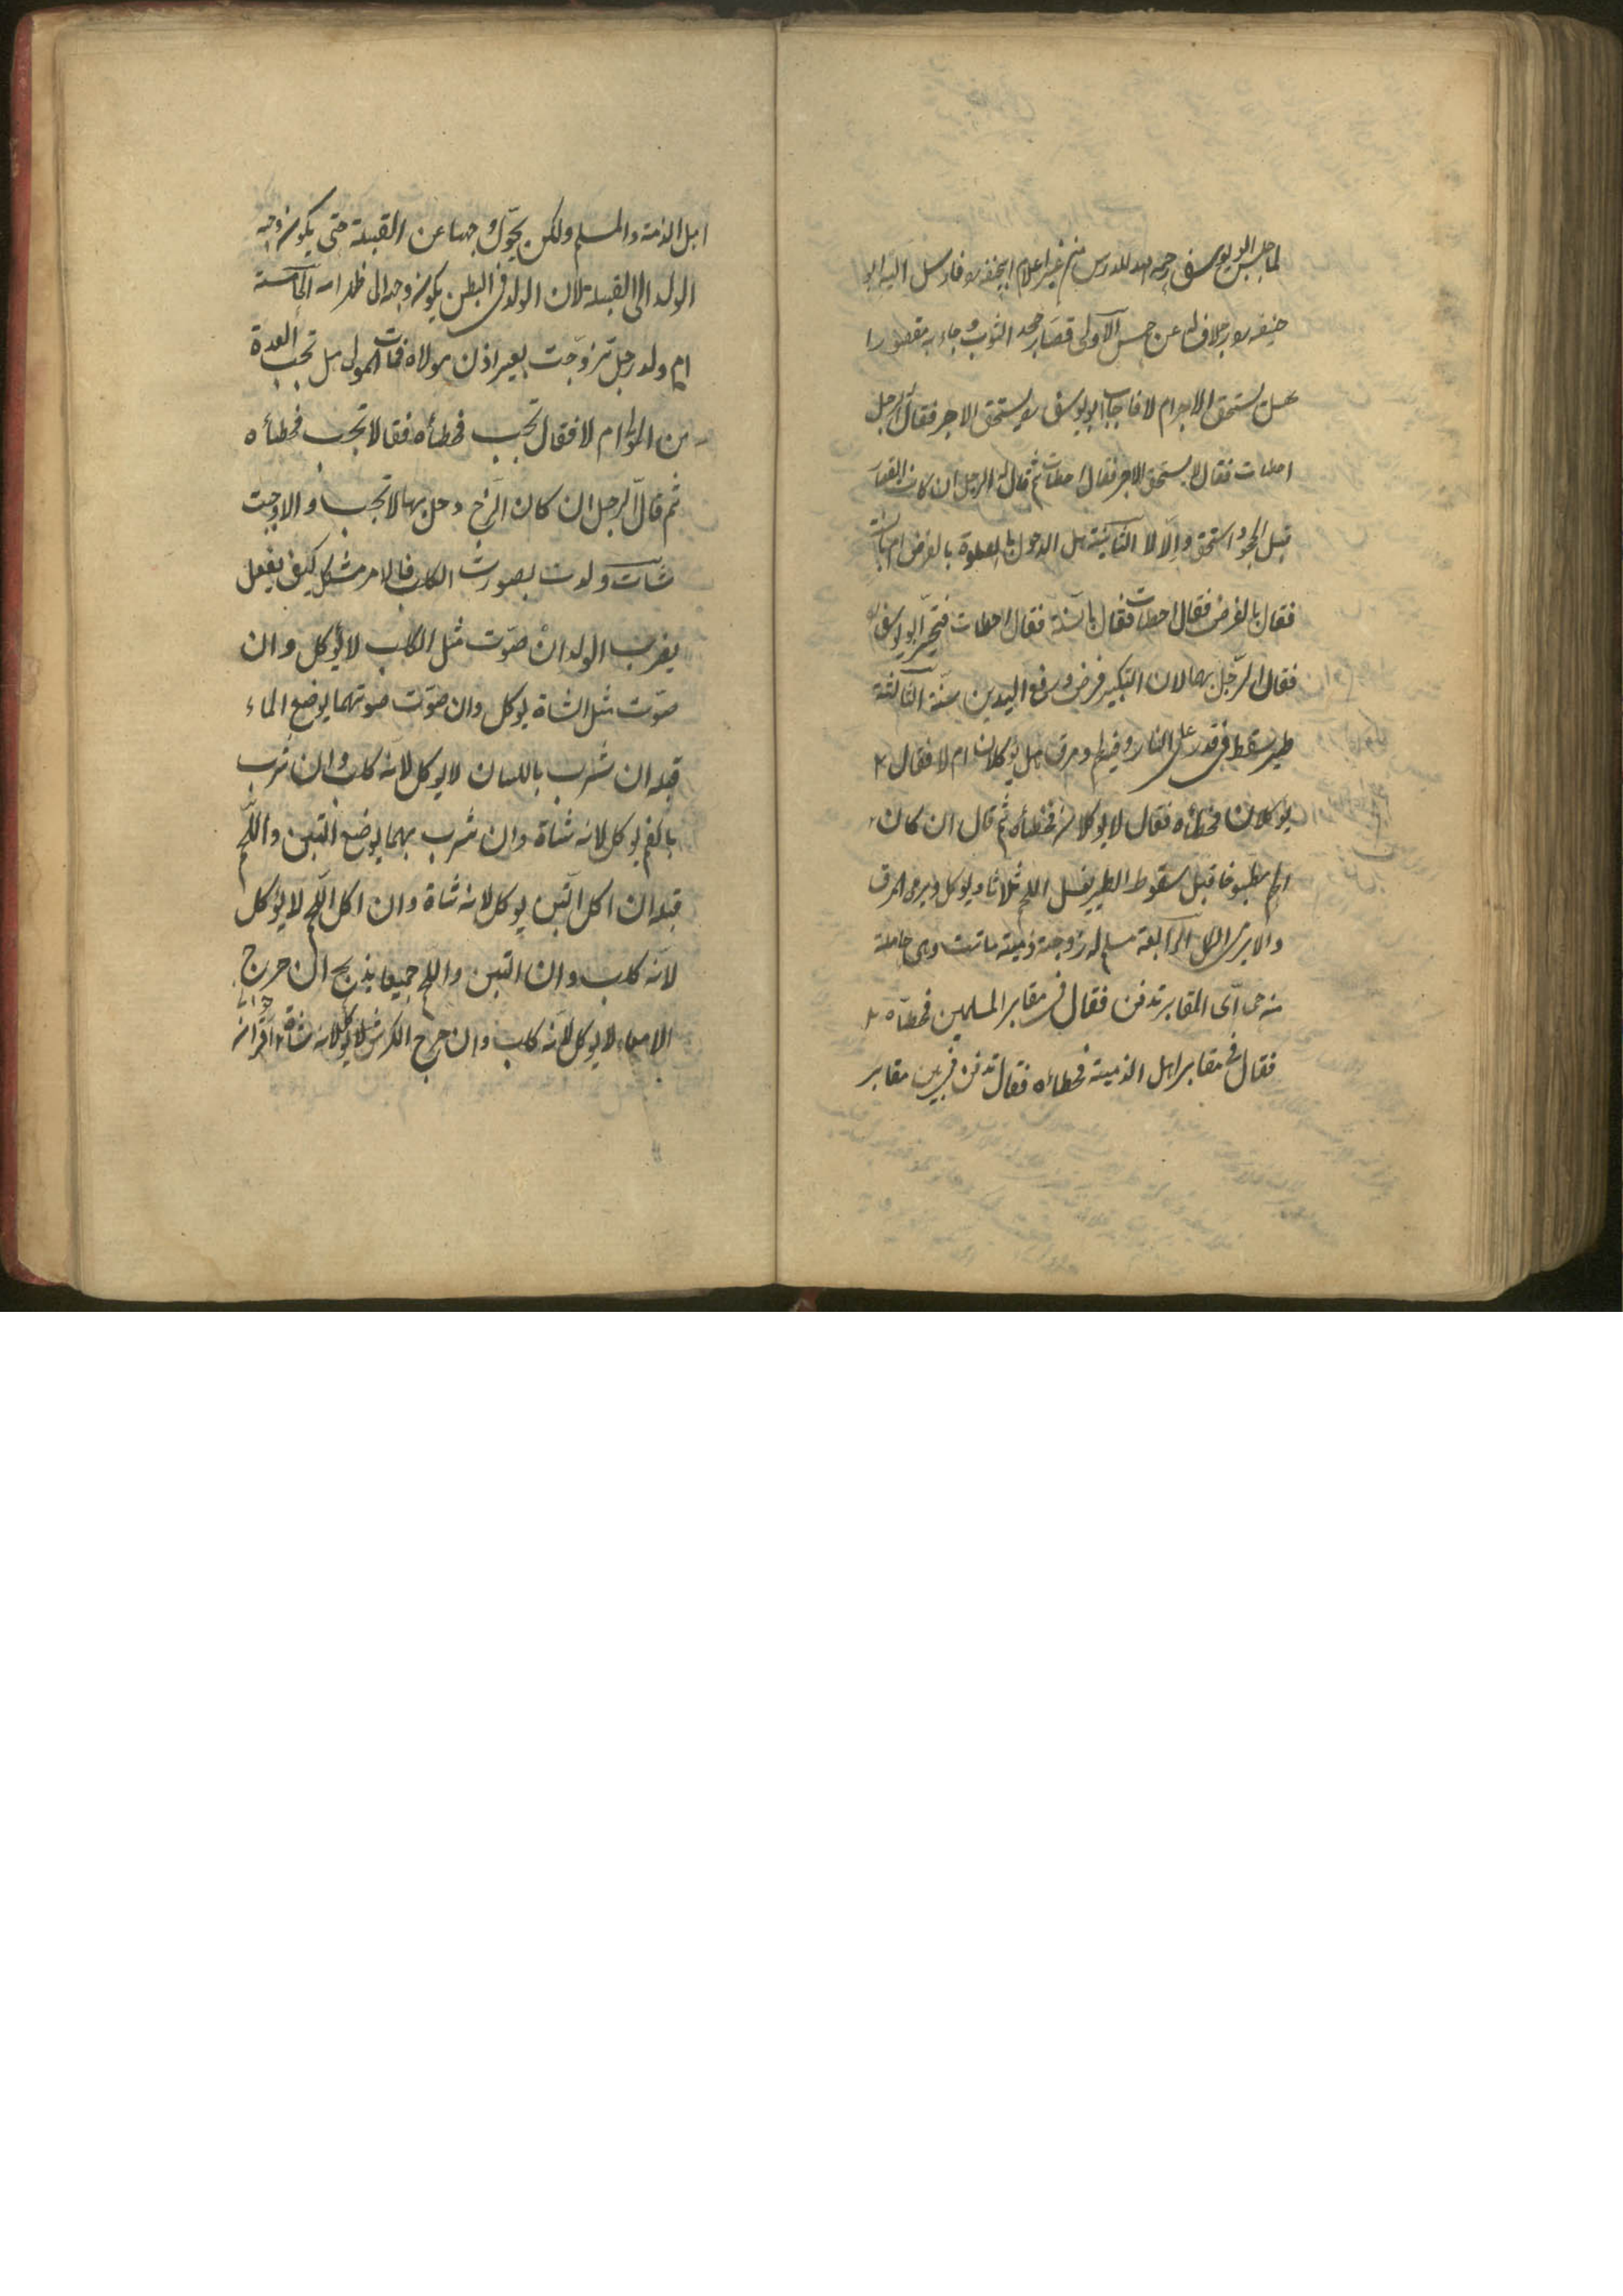 لما جلس ابو يوسف رحمه الله للدرس من غير اعلام ابيحنيفه ره فارسل اليه ابو
حنيفه ره رجلا فساله عن خمس الاولى قصار جحد الثوب و جاء به مقصورا
هل يستحق الاجر ام لا فاجاب ابو يوسف ره يستحق الاجر فقال له الرجل
اخطات فقال لا يستحق الاجر فقال اخطات ثم قال له الرجل ان كان القصارة
قبل الجحود استحق والا لا الثانية هل الدخول في الصلوة بالفرض ام بالسنة
فقال بالفرض فقال اخطات فقال بالسنة فقال اخطات فتحير ابو يوسف
فقال الرجل بهما لان التكبير فرض ورفع اليدين سنة الثالثة
طير سقط في قدر على النار وفيه لحم ومرق هل يؤكلان ام لا فقال
يؤكلان فخطأه فقال لا يوكلان فخطأه ثم قال ان كان
اللحم مطبوخا قبل سقوط الطير يغسل اللحم ثلاثا ويوكل ويرمى المرق
والا يرمى الكل الرابعة مسلم له زوجة ذمية ماتت وهى حاملة
منه فى اى المقابر تدفن فقال في مقابر المسلمين فخطأه
فقال في مقابر اهل الذمية فخطاه فقال تدفن في بين مقابر
اهل الذمة والمسلم ولكن يحول وجهها عن القبلة حتى يكون وجه
الولد الى القبلة لان الولد في البطن يكون وجهه الى ظهر امه الخامسة
ام ولد رجل تزوجت بغير اذن مولاه فمات المولى هل تجب العدة
من المولى ام لا فقال تجب فخطأه فقال لا تجب فخطأه
ثم قال الرجل ان كان الزوج دخل بها لا تجب والا وجبت
شات ولدت بصورت الكلب فالامر مشكل كيف يفعل
يضرب الولد ان صوت مثل الكلب لا يؤكل وان
صوت مثل الشاة يوكل وان صوت صوتهما يوضع الماء
قبله ان شرب باللسان لا يوكل لانه كلب وان شرب
بالفم يوكل لانه شاة وان شرب بهما يوضع التبن واللحم
قبله ان اكل التبن يوكل لانه شاة وان اكل اللحم لا يؤكل
لانه كلب وان التبن واللحم جميعا يذبح ان خرج
الامعاء لا يوكل لانه كلب وان خرج الكرش يوكل لانه شاة